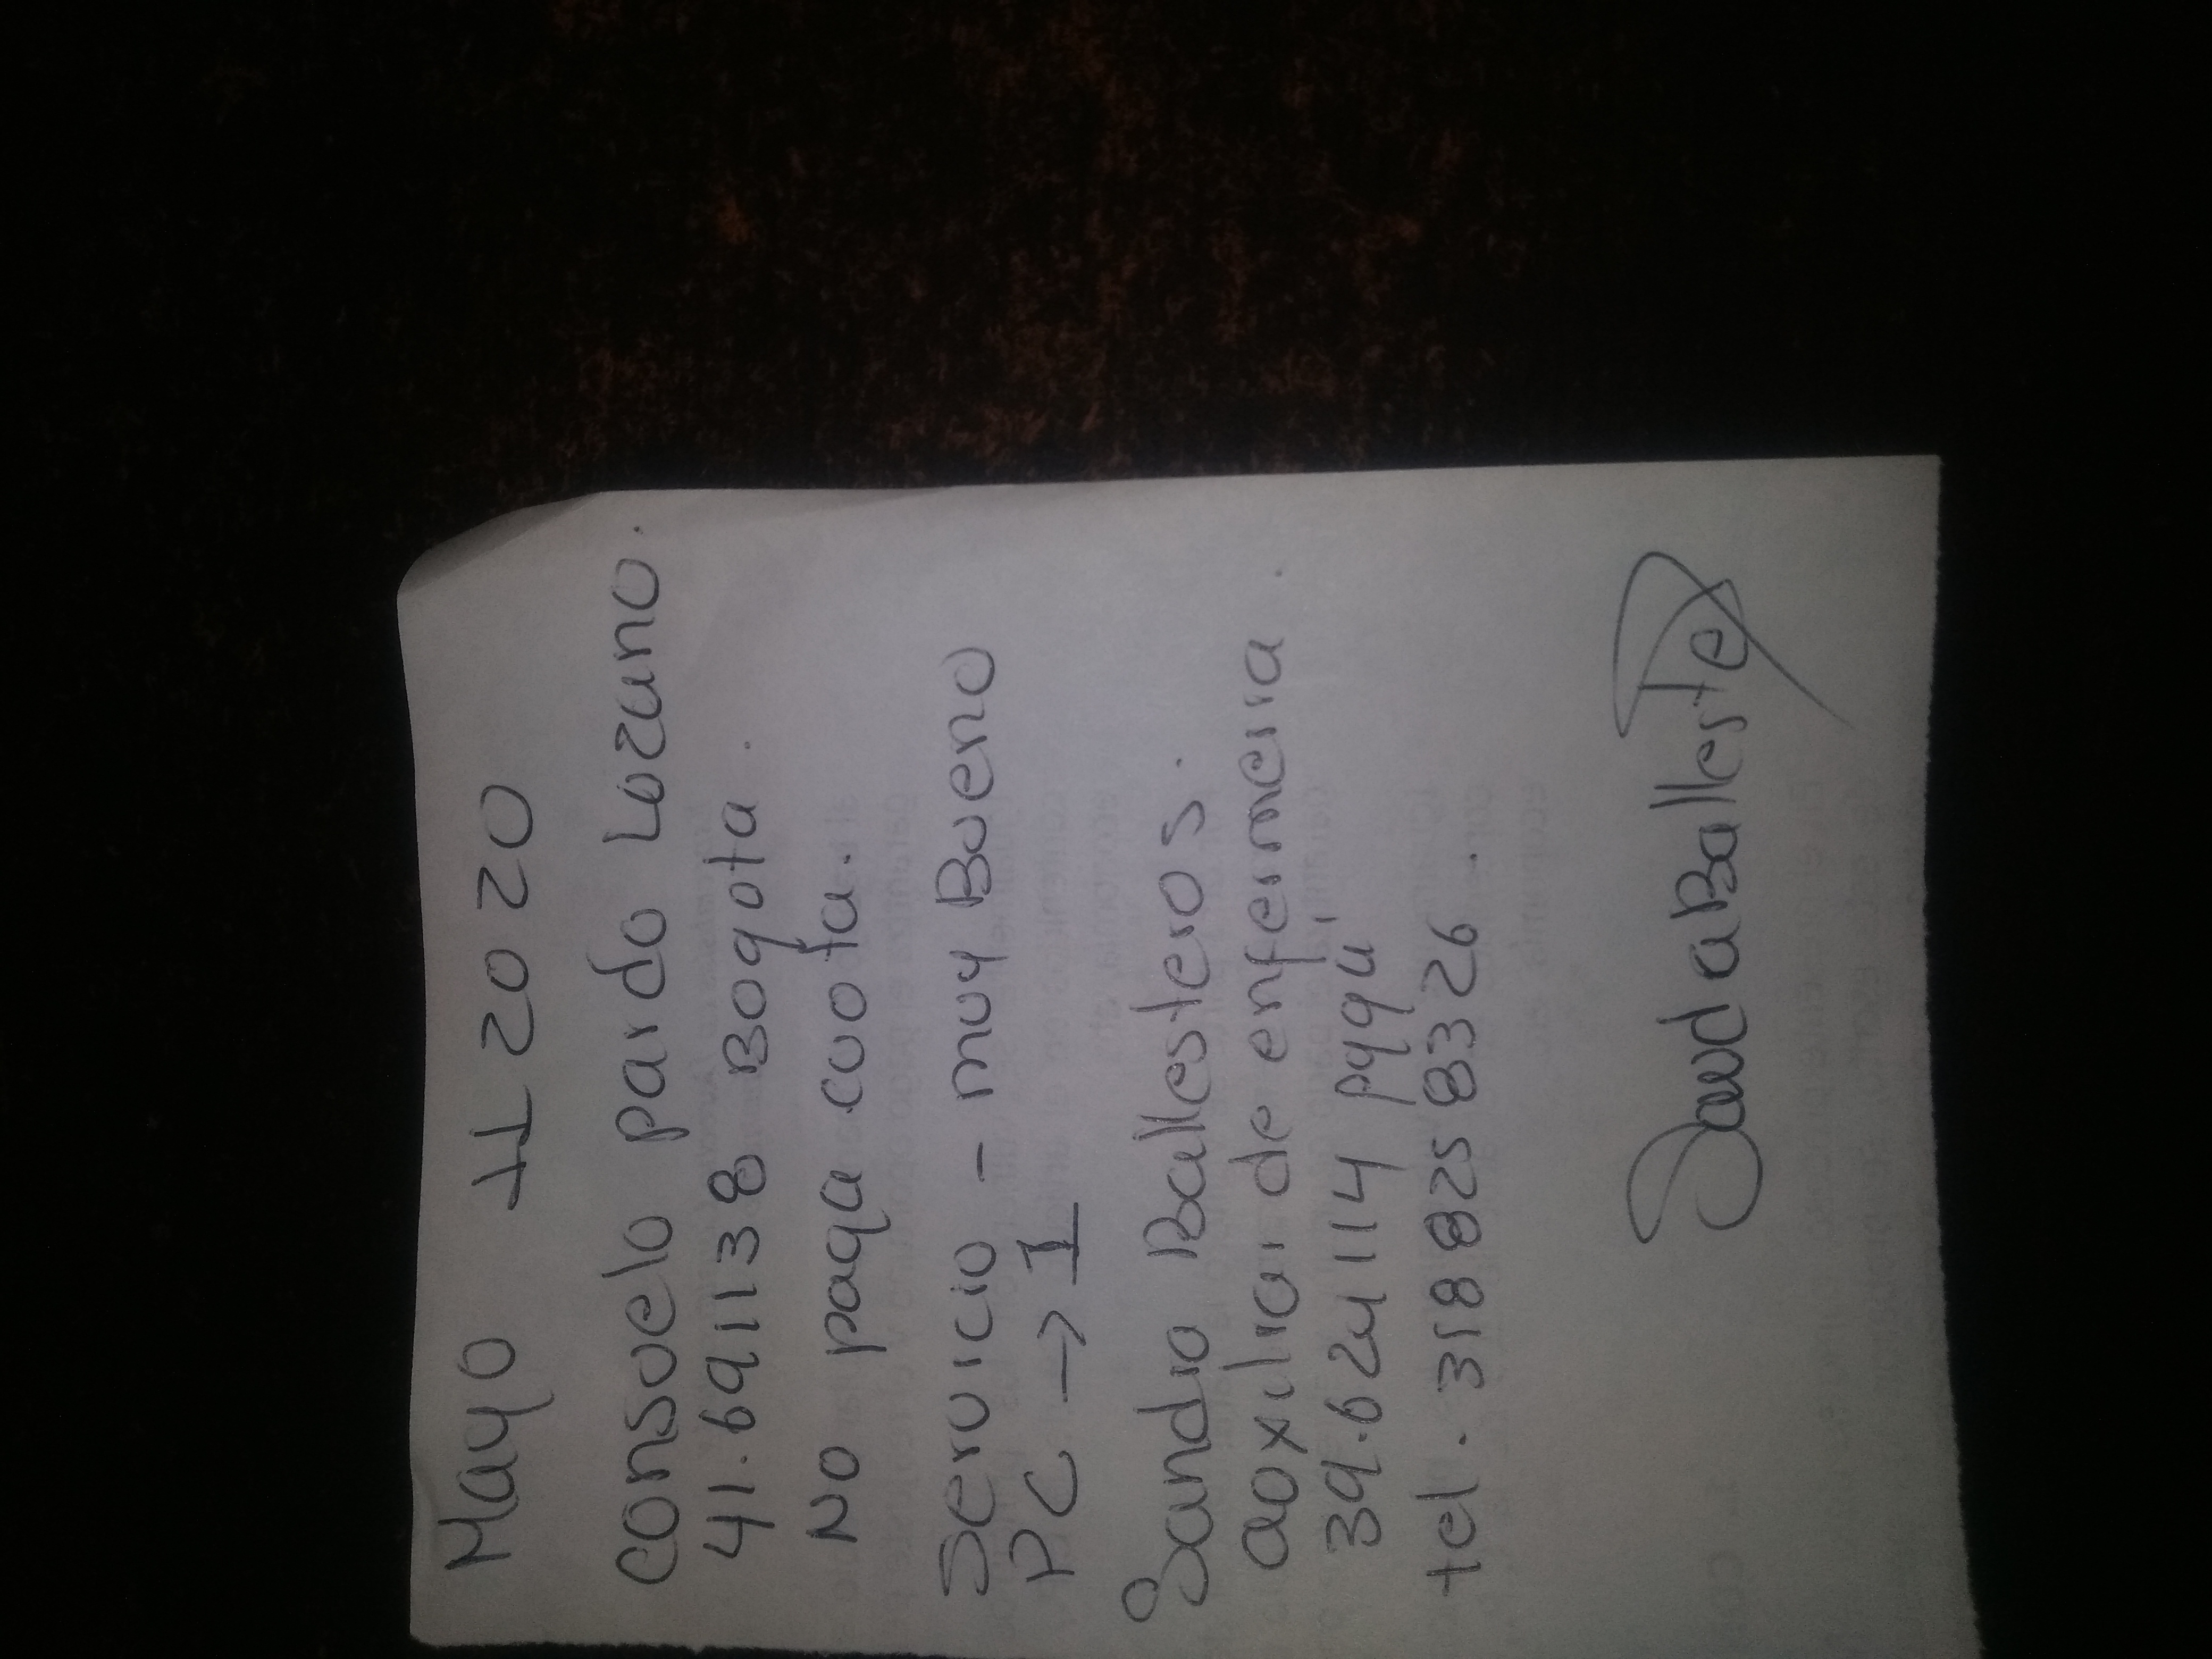 Mayo 11 2020
Consuelo pardo Lozano.
41.691138 Bogota.
No paga cuota.
Servicio - muy Bueno
PC → 1
Sandra Ballesteros.
auxiliar de enfermeria.
39.624114 pgga
tel. 318 825 8326.
SandaBalleste